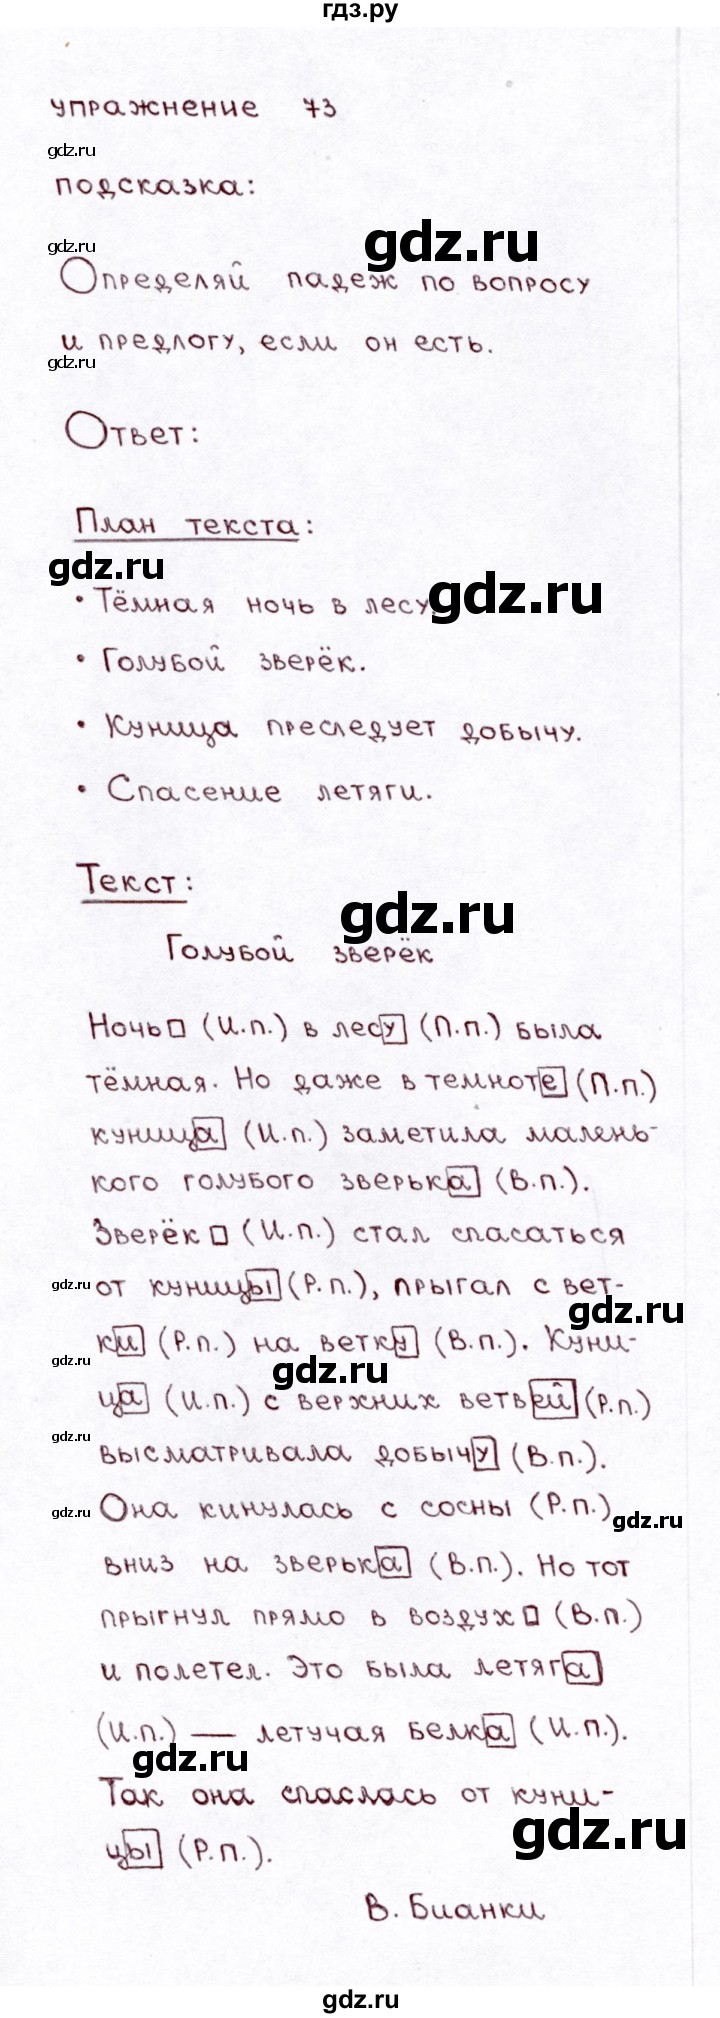 гдз.ру
упражнение 73
gdz.ru
подсказка:
gdz.ru
gdz.ru
Определяй падеж по вопросу
и предлогу, если он есть.
gdz.ru
Ответ:
План текста:
gdz.ru
gdz.ru
• Тёмная ночь в лесу.
• Голубой зверёк.
• Куница преследует добычу.
• Спасение летяги.
Текст:
gdz.ru
Голубой зверёк
Ночь□ (И.п.) в лесу (П.п.) была
тёмная. Но даже в темноте (П.п.)
куница (И.п.) заметила малень-
кого голубого зверька (В.п.).
Зверёк□ (И.п.) стал спасаться
gdz.ru
от куницы (Р.п.), прыгал с вет-
gdz.ru
ки (Р.п.) на ветку (В.п.). Куни-
gdz.ru
gdz.ru
ца (И.п.) с верхних ветвей (Р.п.)
gdz.ru
высматривала добычу (В.п.).
gdz.ru
Она кинулась с сосны (Р.п.)
gdz.ru
вниз на зверька (В.п.). Но тот
прыгнул прямо в воздух□ (В.п.)
и полетел. Это была летяга
(И.п.) — летучая белка (И.п.).
gdz.ru
Так она спаслась от куни-
gdz.ru
цы (Р.п.).
В. Бианки
gdz.ru